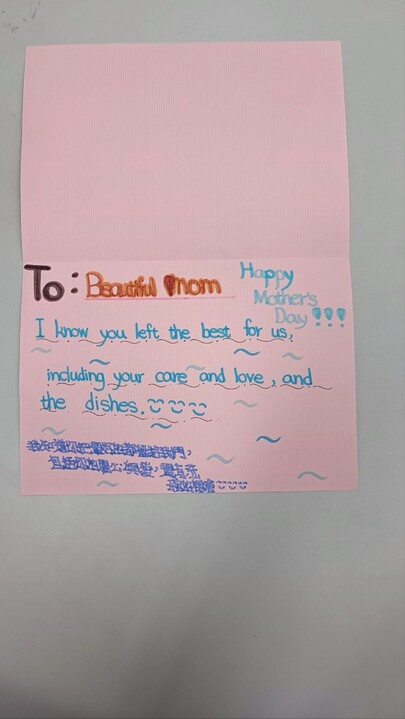 To: Beautiful mom
Happy
Mother's
Day !!!
I know you left the best for us,
including your care and love, and
the dishes.
我知道你把最好的都留給我們,